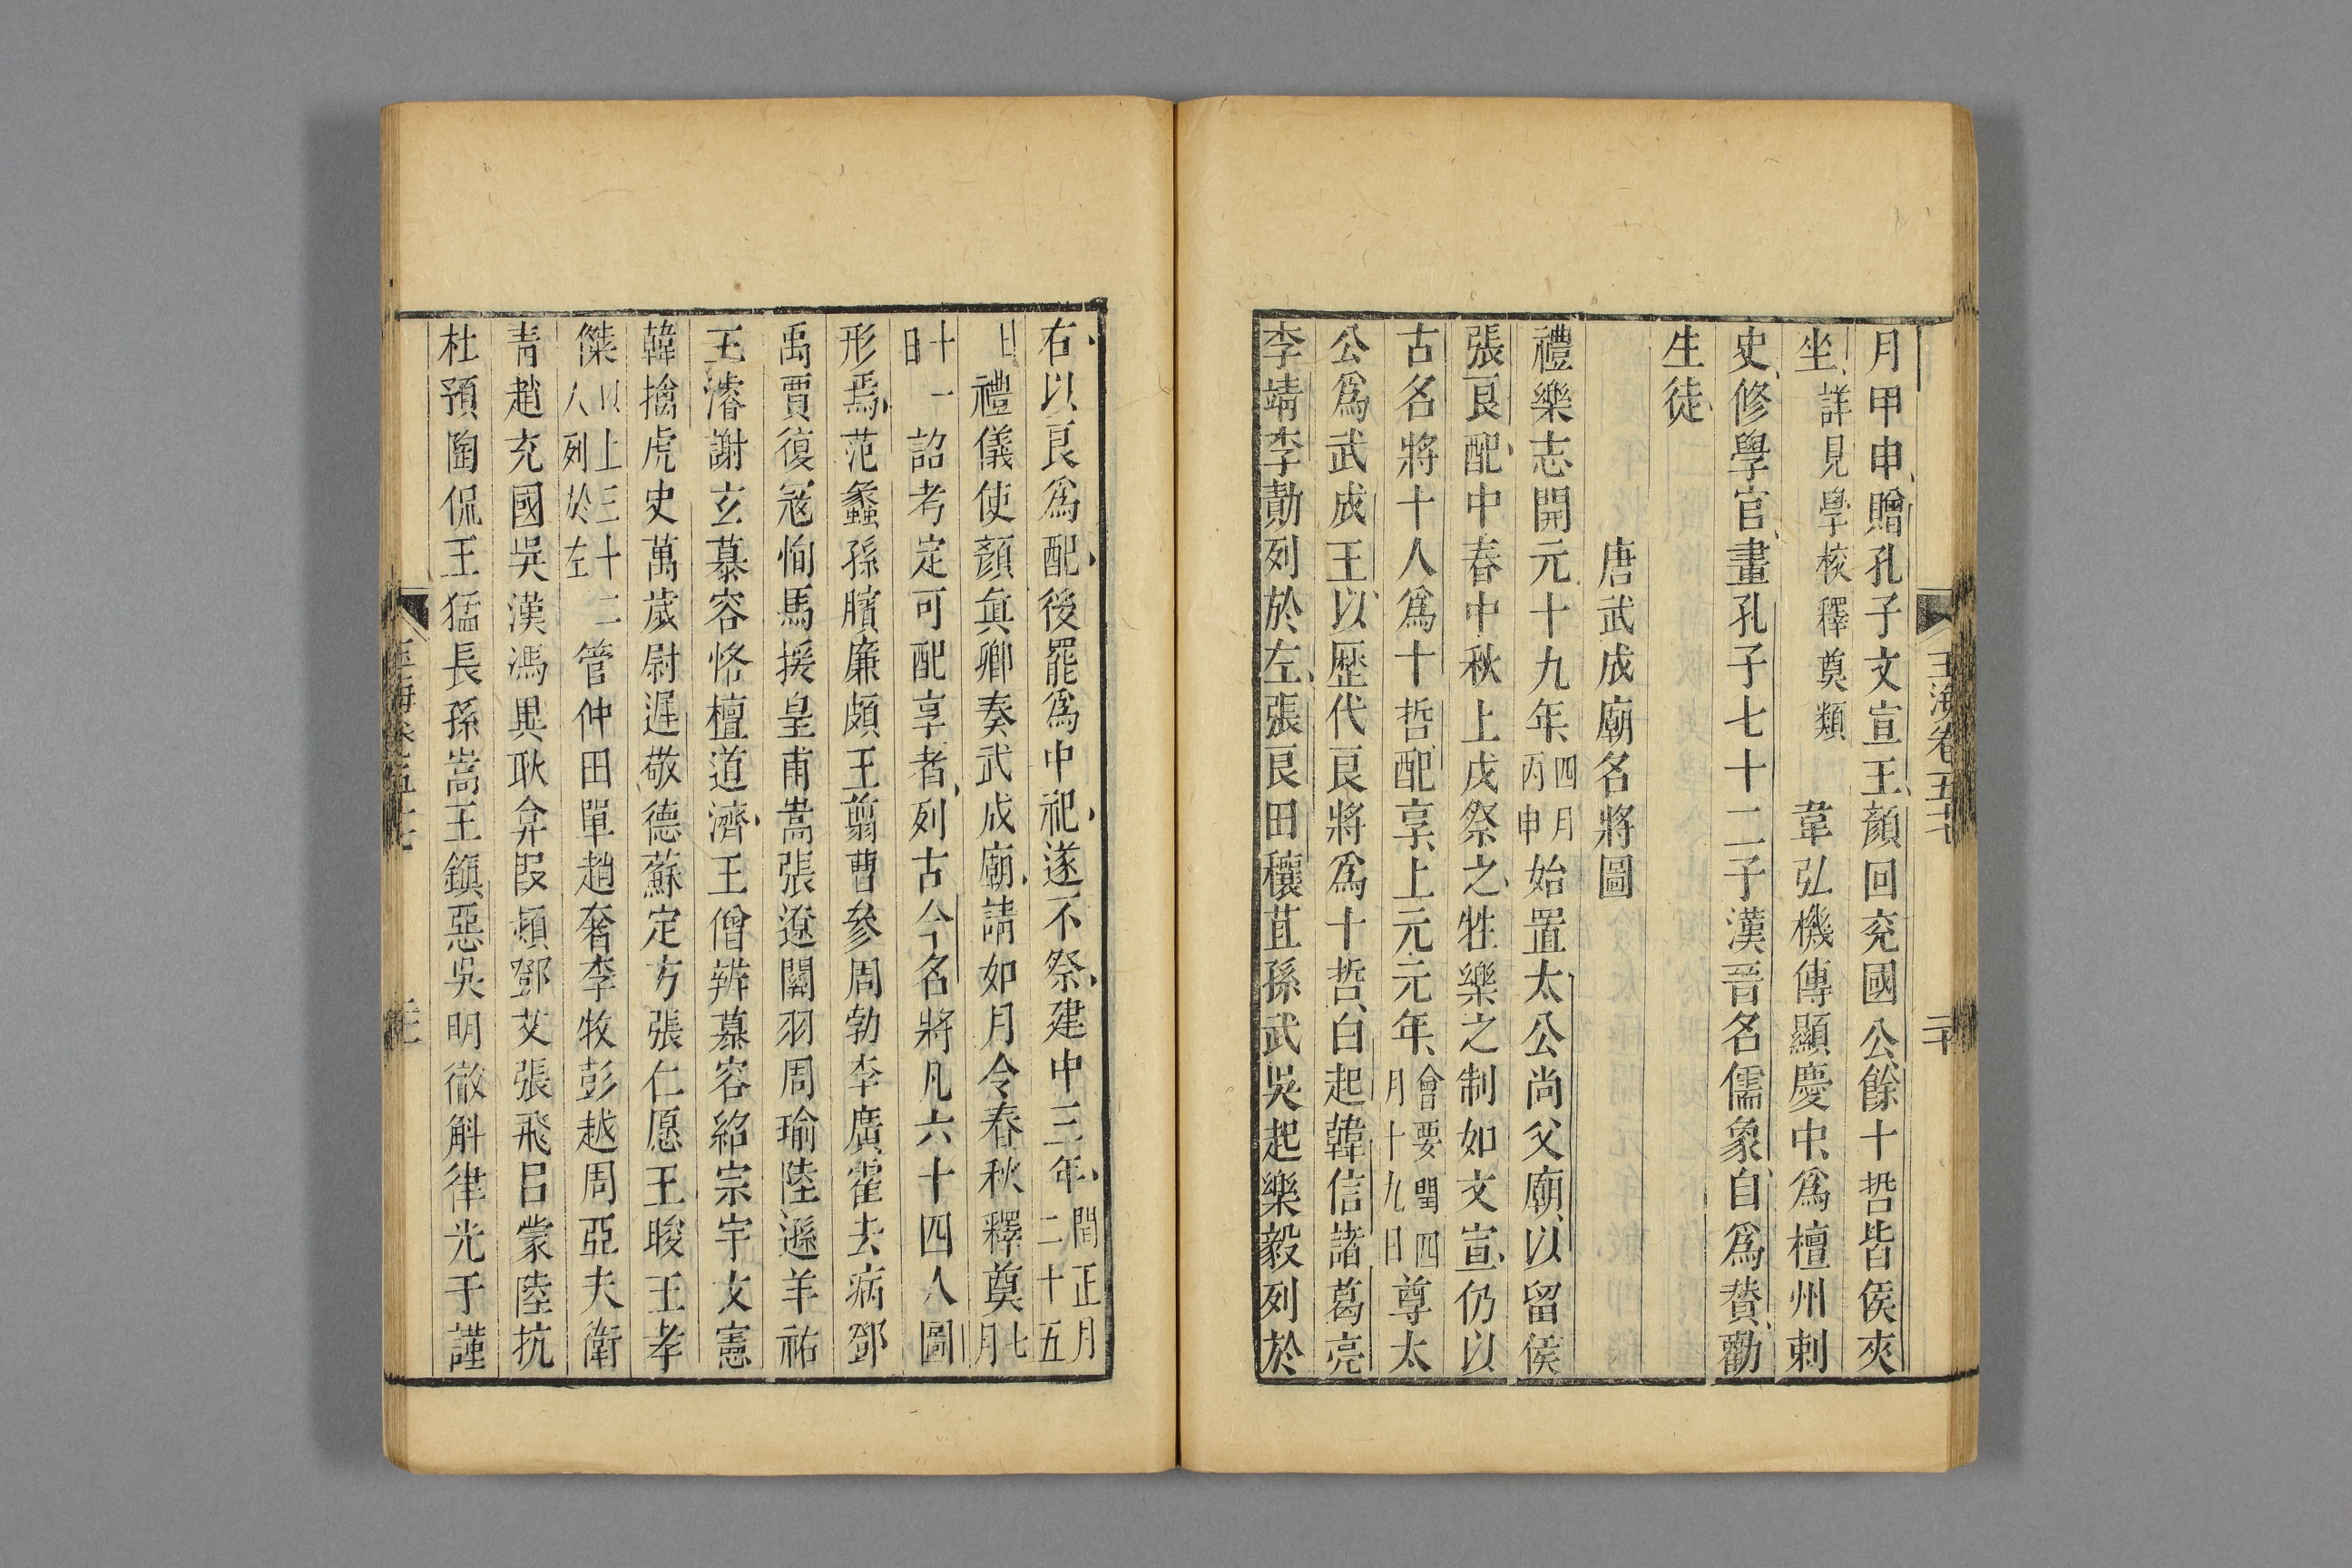 玉海卷五十七
二十
月甲申贈孔子文宣王顏回兖國公餘十哲皆侯夾
坐詳見學校釋奠類　韋弘機傳顯慶中爲檀州刺
史修學官畫孔子七十二子漢晉名儒象自爲贊勸
生徒
唐武成廟名將圖
禮樂志開元十九年四月丙申始置太公尚父廟以留侯
張良配中春中秋上戊祭之牲樂之制如文宣仍以
古名將十人爲十哲配享上元元年會要閏四月十九日尊太
公爲武成王以歷代良將爲十哲白起韓信諸葛亮
李靖李勣列於左張良田穰苴孫武吳起樂毅列於
右以良爲配後罷爲中祀遂不祭建中三年閏正月二十五
日禮儀使顏眞卿奏武成廟請如月令春秋釋奠七月
十一日詔考定可配享者列古今名將凡六十四人圖
形焉范蠡孫臏廉頗王翦曹參周勃李廣霍去病鄧
禹賈復寇恂馬援皇甫嵩張遼關羽周瑜陸遜羊祜
王濬謝玄慕容恪檀道濟王僧辨慕容紹宗宇文憲
韓擒虎史萬歲尉遲敬德蘇定方張仁愿王晙王孝
傑以上三十二人列於左管仲田單趙奢李牧彭越周亞夫衛
青趙充國吳漢馮異耿弇段熲鄧艾張飛呂蒙陸抗
杜預陶侃王猛長孫嵩王鎭惡吳明徹斛律光于謹
玉海卷五十七